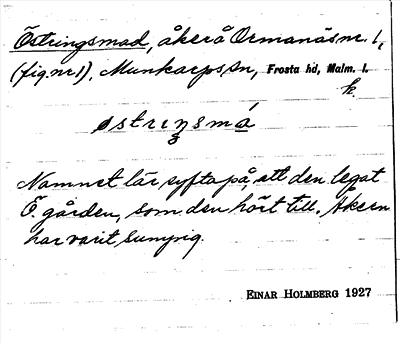 Östringsmad, åker å Ormanäs nr. 1,
(fig. nr 1), Munkarps sn, Frosta hd, Malm. l.
k.
østrıŋsmá
Namnet lär syfta på, att den legat
Ö. gården, som den hört till. Åkern
har varit sumpig.
EINAR HOLMBERG 1927